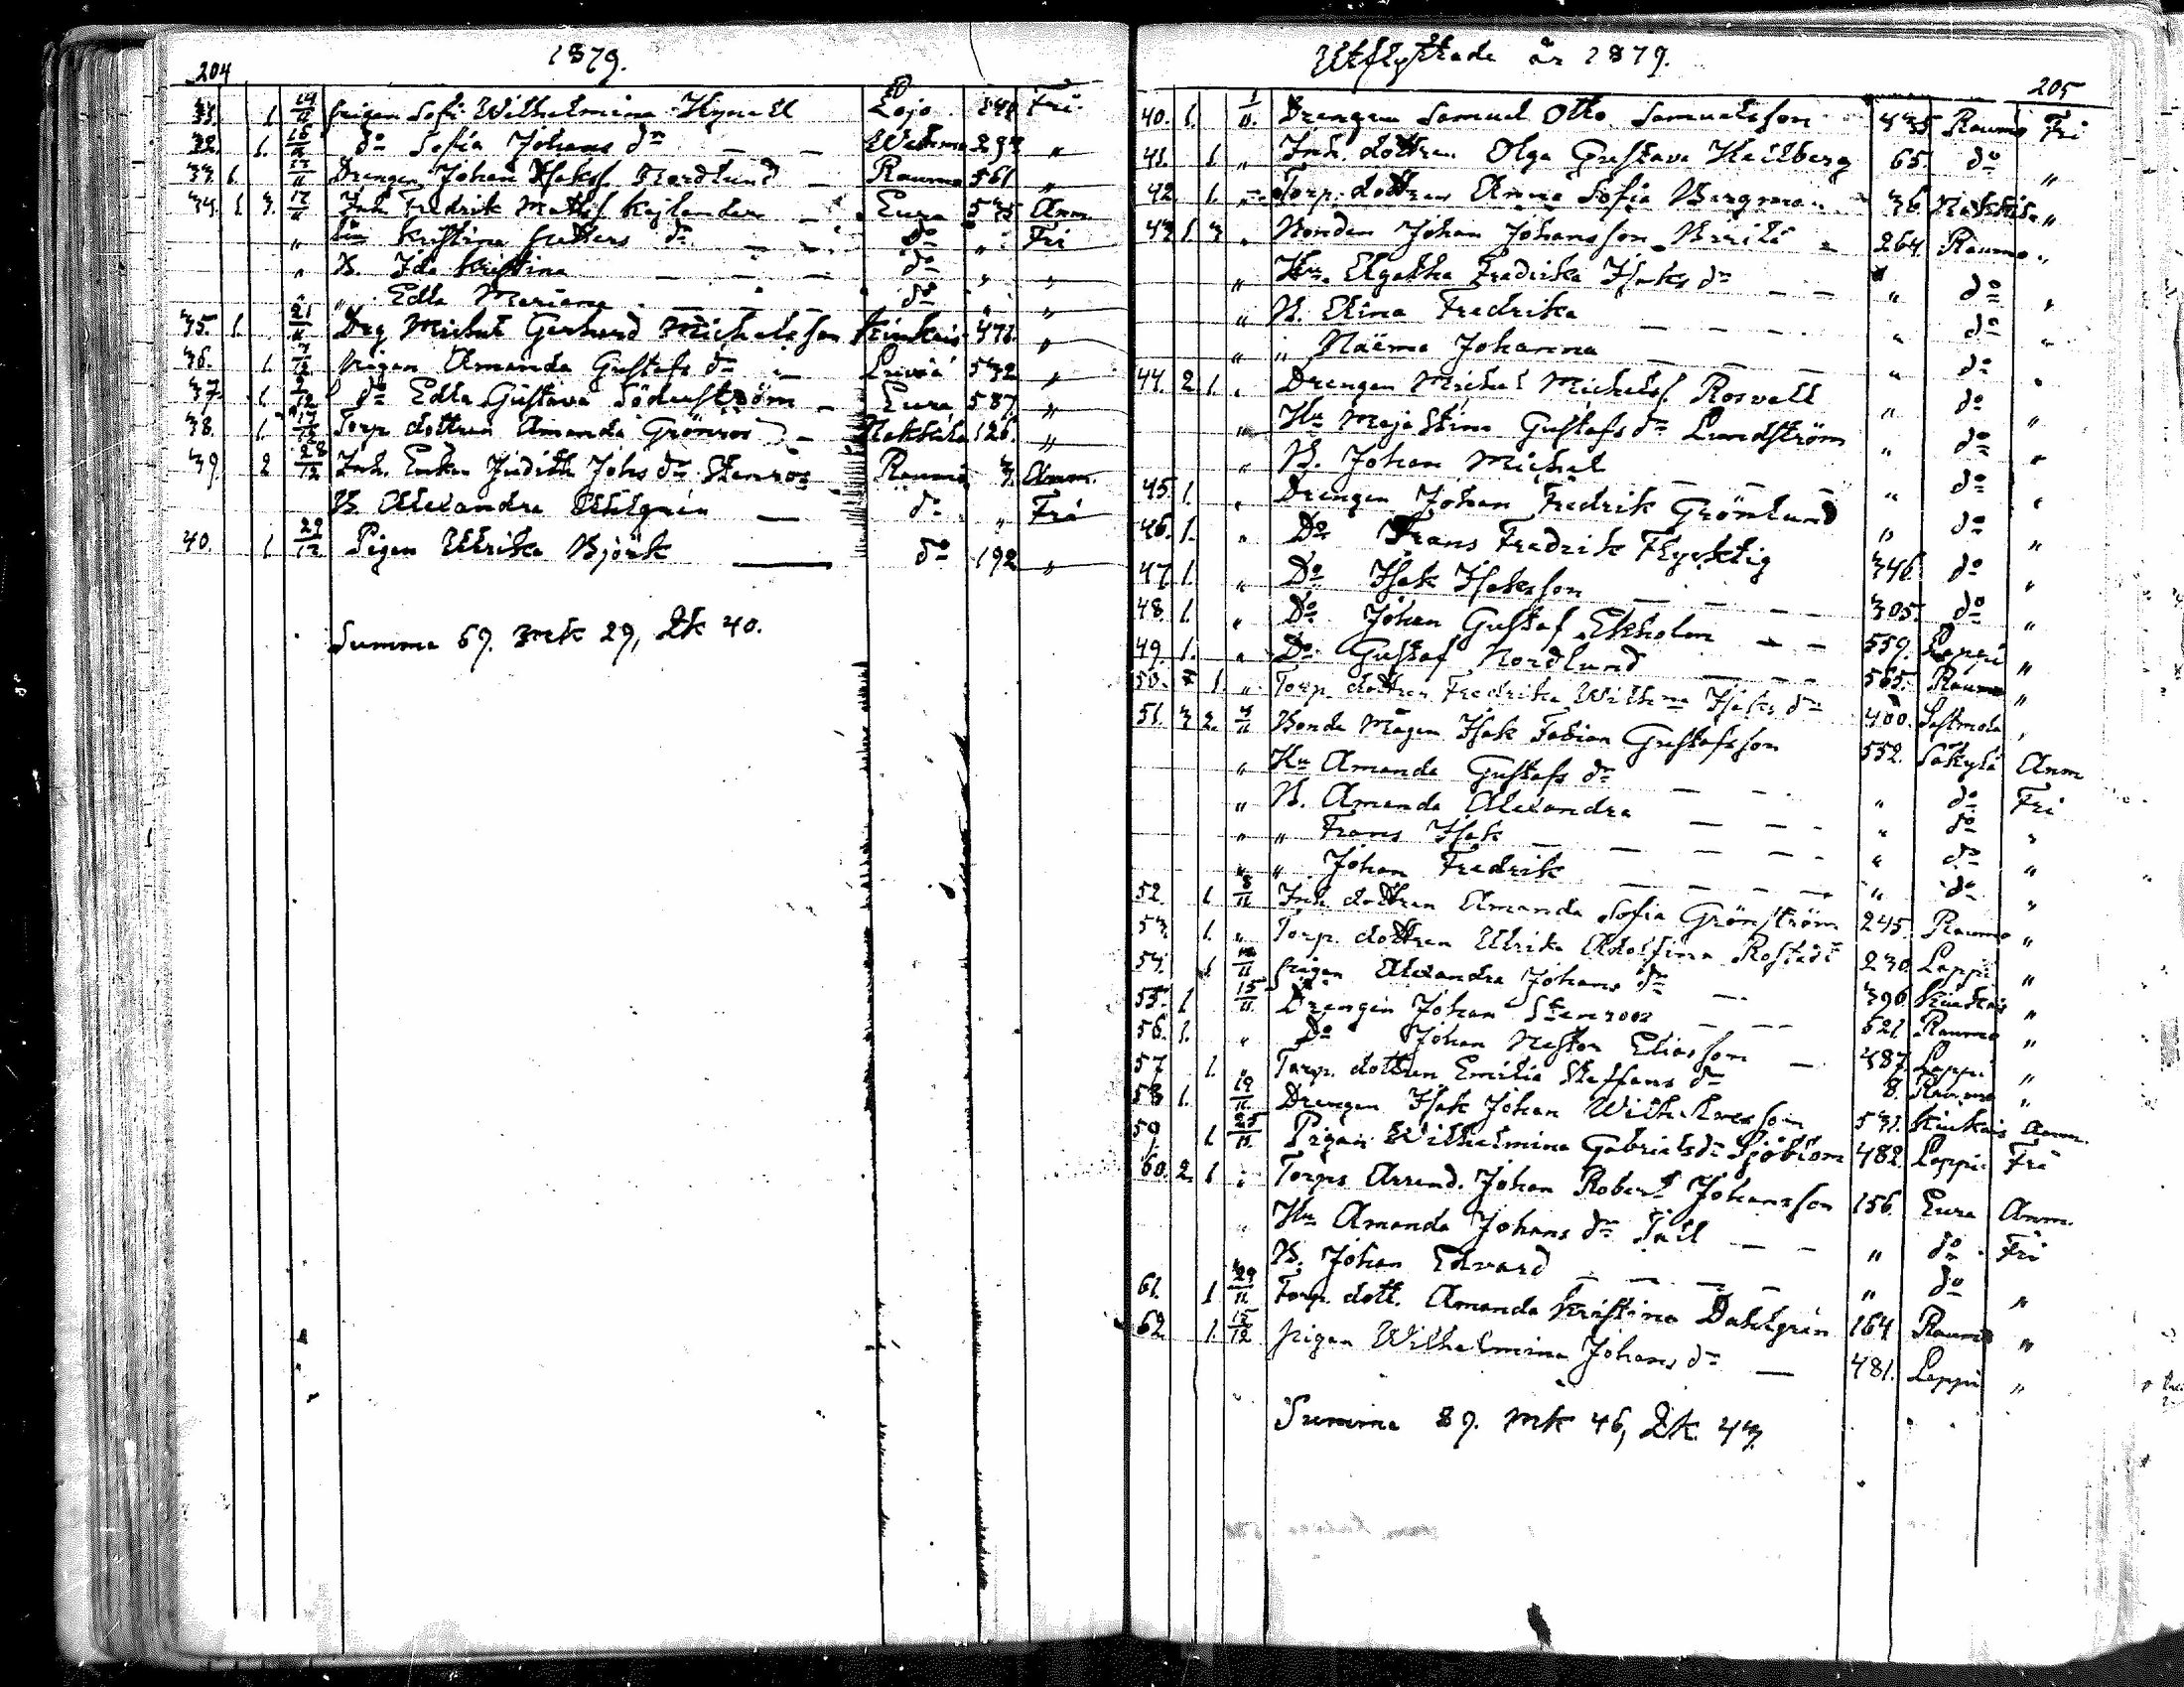 204
1879.
31. 1. 14/10 pigan Sofi Wilhelmina Hynell Lojo 348 Fri
32. 1. 16/11 do Sofia Johans dr Wehmo 293 "
33. 1. 17/11 Drengen Johan Isakss. Nordlund Raumo 561 "
34. 1. 3. 17/11 Inh. Fredrik Matss. Kejlander Eura 535 Anm
" Kristina dr do " Fri
" B. Ida Kristina do " "
" " Edla Mariana do " "
35. 1. 21/11 Drg Michel Gerhard Michelsson Hinkais 471. "
36. 1. 7/12 pigan Amanda Gustafs dr Luvia 532 "
37. 1. 9/12 do Edla Gustava Söderström Eura 587. "
38. 1. 17/12 Torp. dottren Amanda Grönros Nakkila 126. "
39. 2 28/12 Inh. Enkan Judith Johs dr Stenros Raumo 3. Anm.
B Alexandra Ahlgrén do " Fri
40. 1. 29/12 Pigan Ulrika Björk do 192 "
Summa 69. mk 29, Qk 40.
Utflyttade år 1879.
205
40. 1. 1/11. Drengen Samuel Otto Samuelsson 335 Raumo Fri
41. 1 " Inh. dottren Olga Gustava Heilberg 65. do "
42. 1. " Torp. dottren Anna Sofia Bergman 36. Nakkila "
43. 1. 3 " Bonden Johan Johansson 264. Raumo "
" Hu. Agatha Fredrika Isaks dr " do "
" B. Elina Fredrika " do "
" " Naëma Johanna " do "
44. 2 1. " Drengen Michel Michelss. Rosvall " do "
" Hu Maja Stina Gustafs dr Lundström " do "
" B. Johan Michel " do "
45. 1. " Drengen Johan Fredrik Grönlund " do "
46. 1. " Do Frans Fredrik Flycktig 346. do "
47. 1. " Do Isak Isaksson 305. do "
48. 1. " Do Johan Gustaf Ekholm 559. Lappi "
49. 1. " Do Gustaf Nordlund 565. Raumo "
50. 1. " Torp. dottren Fredrika Wilhna Isaks dr 400. Sastmola "
51. 3 2. 4/11 Bonde Mågen Isak Fabian Gustafsson 552. Säkylä Anm
" Hu Amanda Gustafs dr " do Fri
" B. Amanda Alexandra " do "
" " Frans Isak " do "
" " Johan Fredrik " do "
52. 1. 8/11 Inh. dottren Amanda Sofia Grönström 245. Raumo "
53. 1. " Torp. dottren Ulrika Adolfina Rostedt 230. Lappi "
54. 1 /11 pigan Alexandra Johans dr 390 Hinkais "
55. 1 15/11 Drengen Johan Stenroos 521 Raumo "
56. 1. " Do Johan Nestor Eliasson 487. Lappi "
57 1. " Torp. dottren Emilia Staffans dr 8. Raumo "
58 1. 19/11. Drengen Isak Johan Wilh. 531. Hinkais Anm.
59. 1 25/11 Pigan Wilhelmina Gabriels dr Sjöblom 482. Lappi Fri
60. 2. 1 " Torps Arrend. Johan Robert Johansson 156. Eura Anm.
" Hu Amanda Johans dr Tåil " do Fri
B. Johan Edvard " do "
61. 1 29/11 Torp. dott. Amanda Kristina Dahlgrén 164 Raumo "
62. 1. 15/12 pigan Wilhelmina Johans dr 481. Lappi "
Summa 89. mk 46, Qk 43.